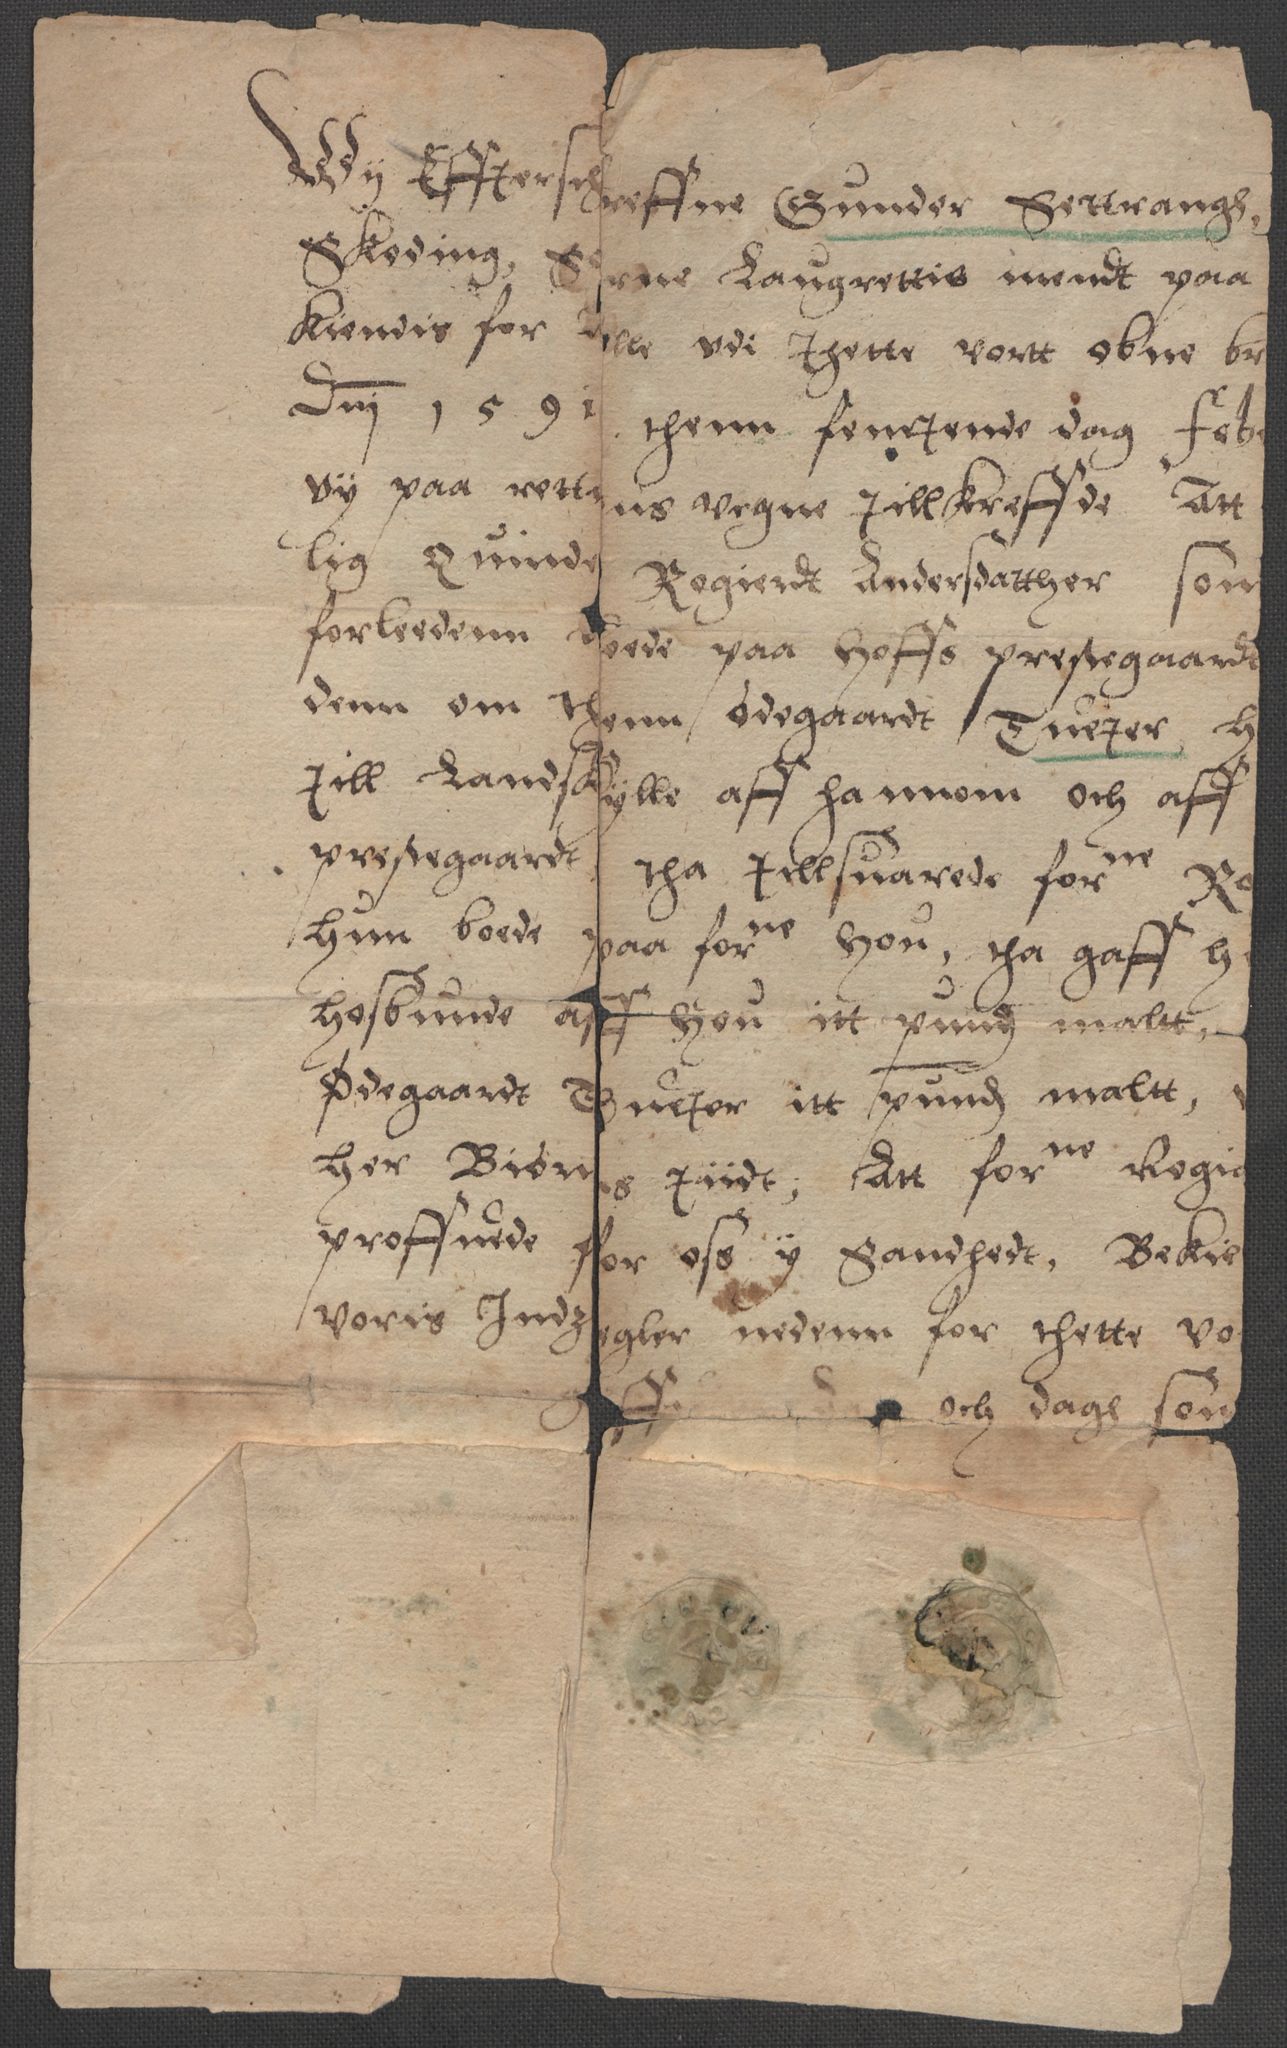 Wy Effterschreffne Gunder Settrangh,
Skoding, Sorne Laugrettis mendt paa
kiendis for alle vdi thette vortt obne br
Dnj 1591. thenn femtende dag feb
vy paa rettens vegne tillkreffde Att
lig Quinde Regierdt Andersdatther som
forleedenn boede paa Hoffs prestegaardt
denn om thenn ødegaardt Tueter, h
till Landskylle aff hannom och aff
prestegaardt tha tillsuarede forne Re
hun boede paa forne Hou, tha gaff h
hosbunde aff Hou itt pund maltt,
Ødegaardt Tueter itt pund maltt,
her Biørns tiidt, Att forne Regie
proffuede for oss y Sandhedt, Bekie
voris Indzegler nedenn for thette vo
och dagh som